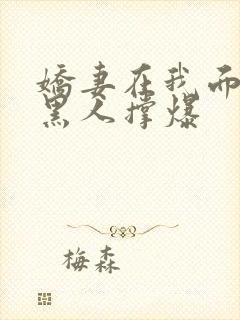 嬌妻在我面
黑人撐爆
梅森